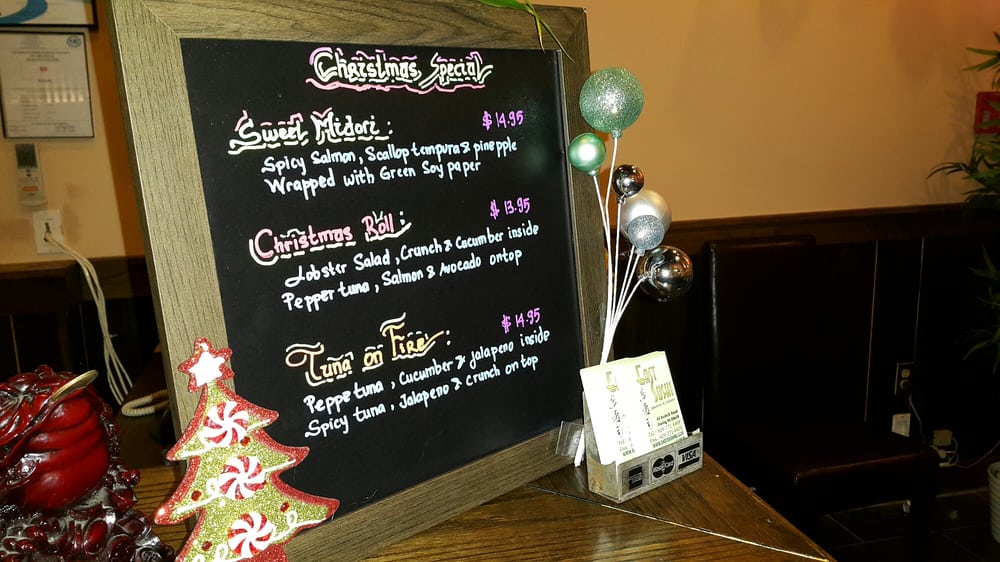 Christmas Special
Sweet Midori : $ 14.95
Spicy Salmon, Scallop tempura & pineapple
Wrapped with Green Soy paper
Christmas Roll : $ 13.95
Lobster Salad, Crunch & Cucumber inside
Pepper tuna, Salmon & Avocado on top
Tuna on Fire : $ 14.95
Peppe tuna, Cucumber & Jalapeno inside
Spicy tuna, Jalapeno & Crunch on top
EAST
SUSHI
VISA